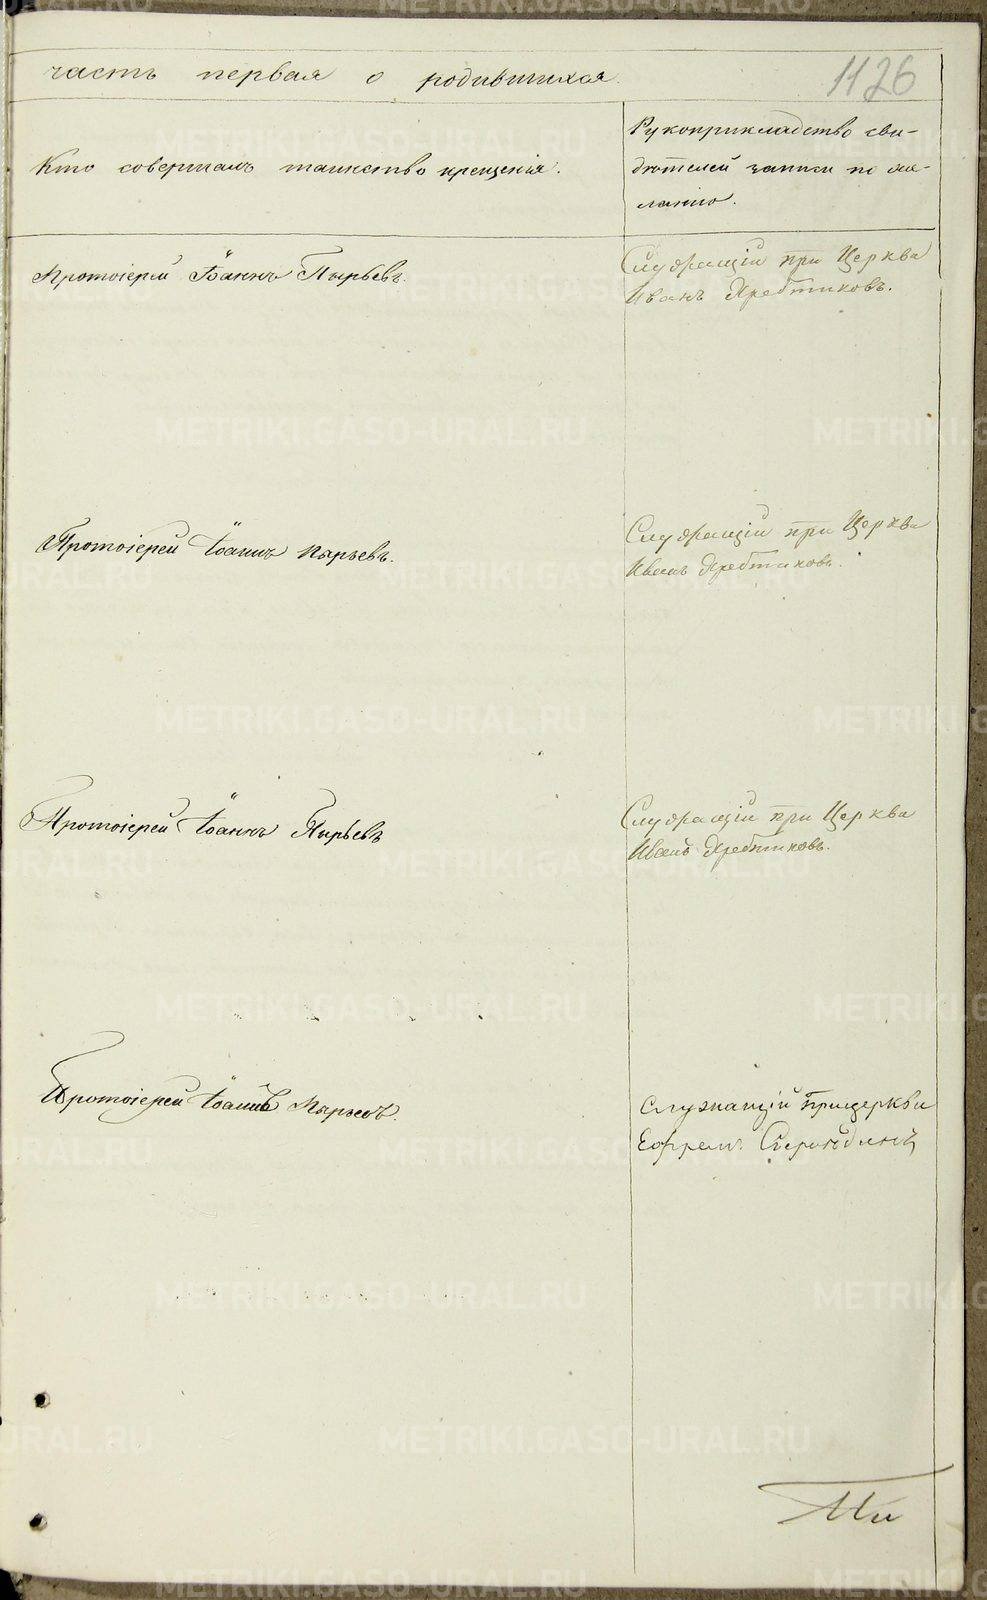 часть первая о родившихся.
1126
Кто совершалъ таинство крещенія.
Рукоприкладство сви-
дѣтелей записи по же-
ланію.
Протоіерей Іоаннъ Пырьевъ.
Служащій при Церкви
Иванъ Хребтиковъ.
Протоіерей Іоаннъ Пырьевъ.
Служащій при Церкви
Иванъ Хребтиковъ.
Протоіерей Іоаннъ Пырьевъ
Служащій при Церкви
Иванъ Хребтиковъ.
Протоіерей Іоаннъ Пырьевъ.
Служащій при церкви
Ефремъ
METRIKI.GASO-URAL.RU